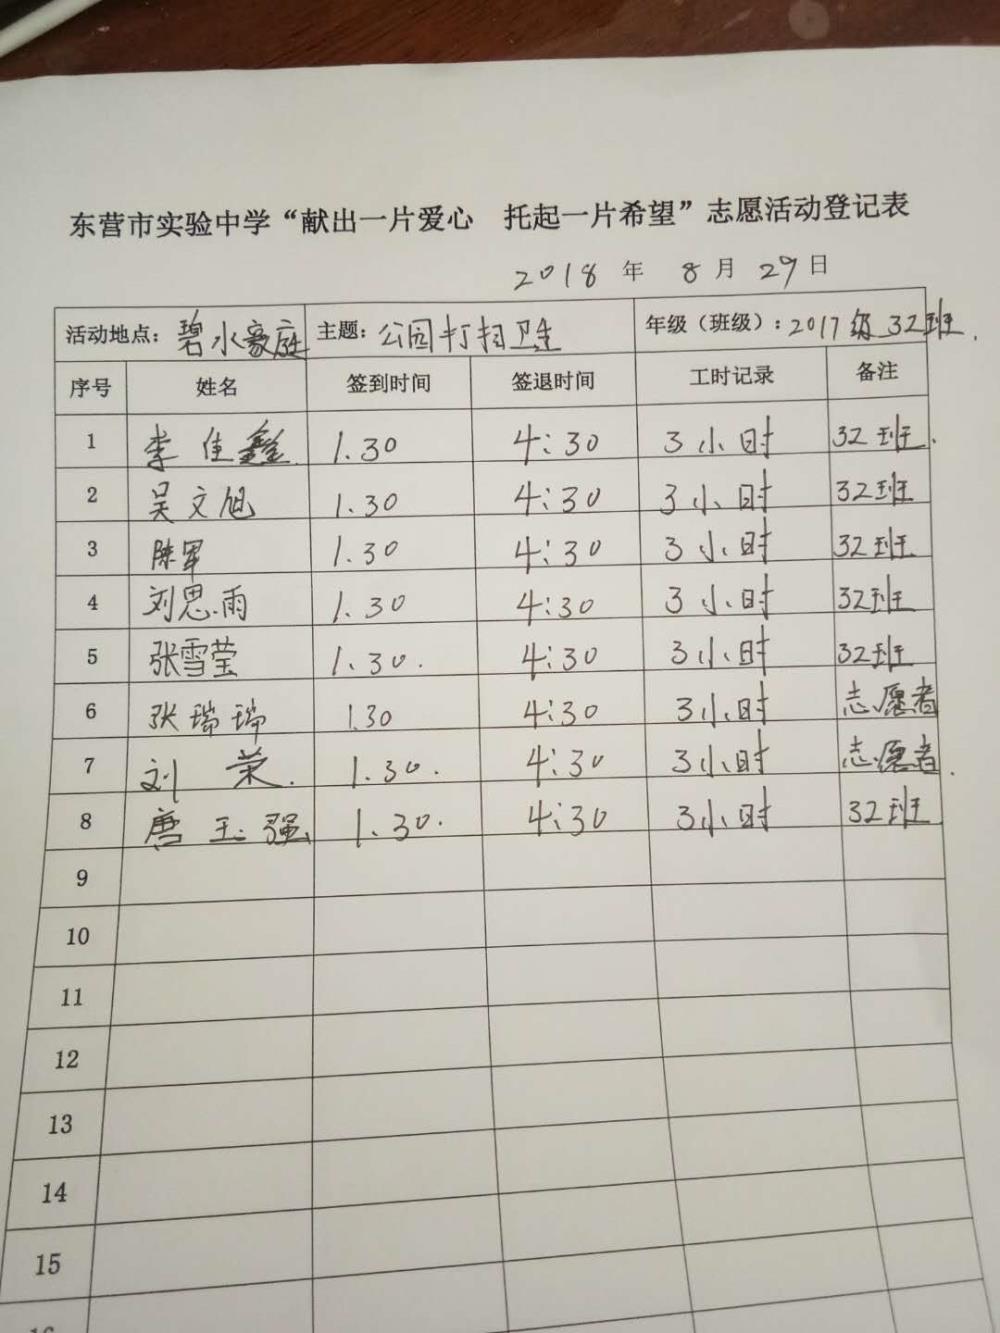 东营市实验中学“献出一片爱心　托起一片希望”志愿活动登记表
2018 年 8 月 29 日
活动地点：碧水豪庭 主题：公园打扫卫生 年级（班级）：2017级32班.
序号 姓名 签到时间 签退时间 工时记录 备注
1 李佳鑫 1.30 4:30 3小时 32班.
2 吴文旭 1.30 4:30 3小时 32班
3 陈军 1.30 4:30 3小时 32班
4 刘思雨 1.30 4:30 3小时 32班
5 张雪莹 1.30. 4:30 3小时 32班
6 张瑞瑞 1.30 4:30 3小时 志愿者
7 刘荣. 1.30. 4:30 3小时 志愿者.
8 唐玉强 1.30. 4:30 3小时 32班
9
10
11
12
13
14
15